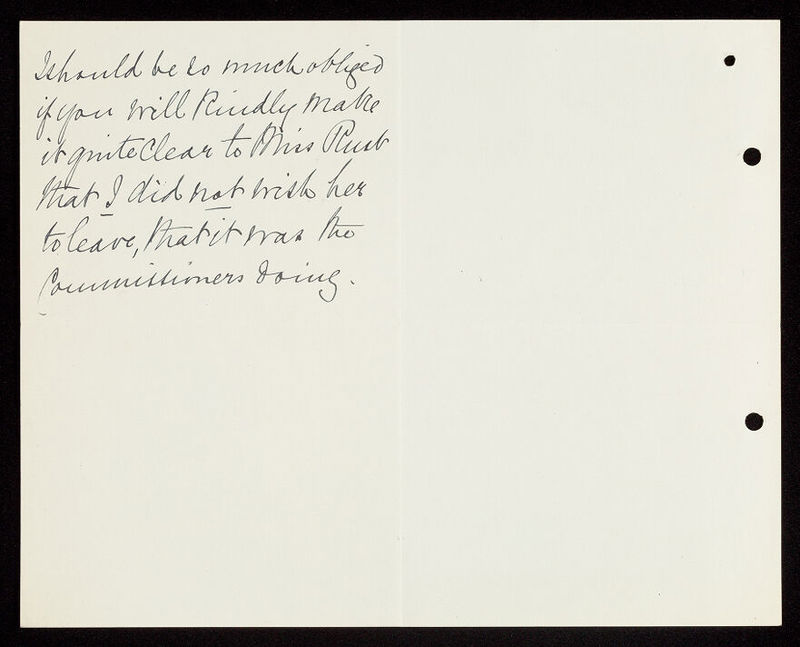 I should be so much obliged
if you will kindly make
it quite clear to Miss Rust
that I did not wish her
to leave, that it was the
Commissioners doing.